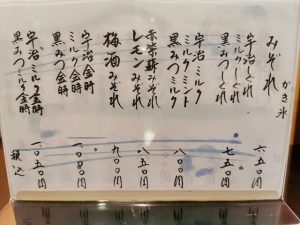 かき氷
みぞれ 六五〇円
宇治しぐれ
ミルクしぐれ
黒みつしぐれ 七五〇円
宇治ミルク
ミルクミント
黒みつミルク 八〇〇円
赤紫蘇みぞれ
レモンみぞれ 八五〇円
梅酒みぞれ 九〇〇円
宇治金時
ミルク金時
黒みつ金時 一〇〇〇円
宇治ミルク金時
黒みつミルク金時 一〇五〇円
税込